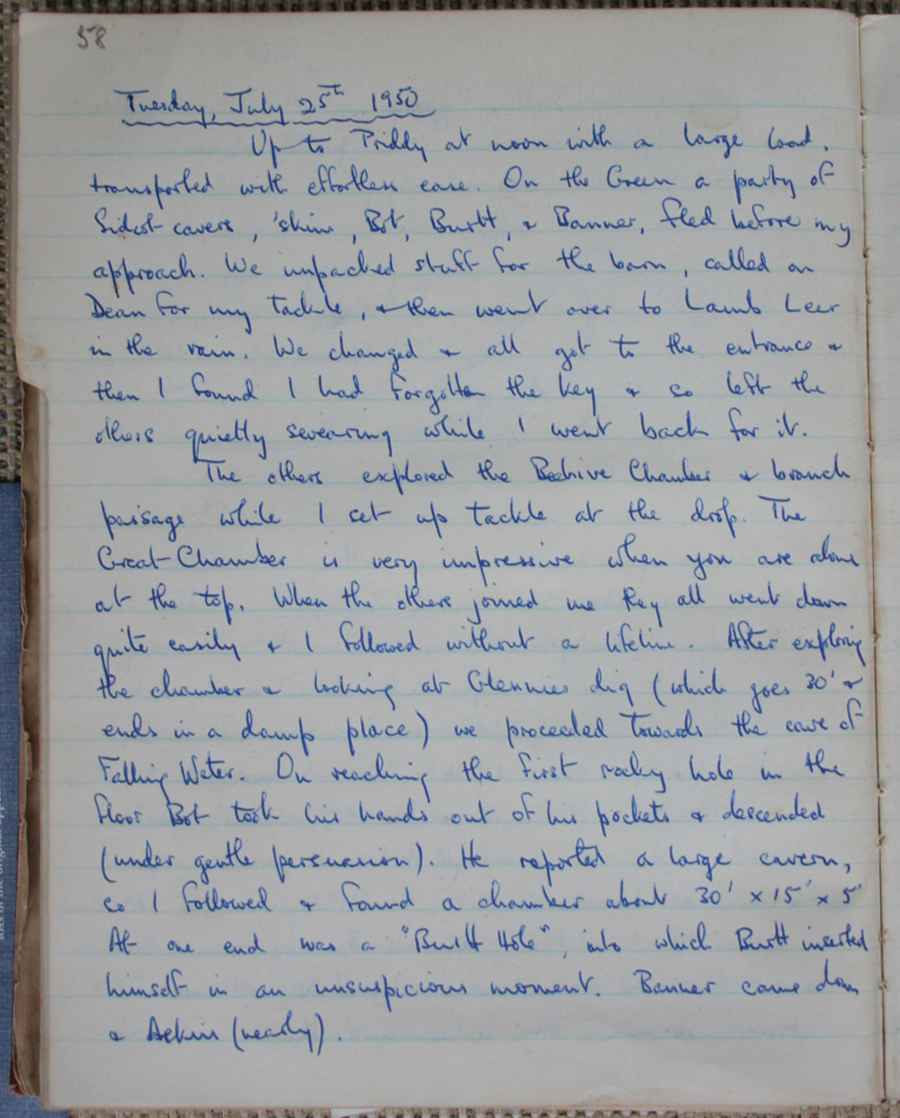 58
Tuesday, July 25th 1950
Up to Priddy at noon with a large load,
transported with effortless ease. On the Green a party of
Sidcot cavers, 'skin, Bot, Burtt, & Banner, fled before my
approach. We unpacked stuff for the barn, called on
Dean for my tackle, & then went over to Lamb Leer
in the rain. We changed & all got to the entrance &
then I found I had forgotten the key & so left the
others quietly swearing while I went back for it.
The others explored the Beehive Chamber & branch
passage while I set up tackle at the drop. The
Great Chamber is very impressive when you are alone
at the top. When the others joined me they all went down
quite easily & I followed without a lifeline. After exploring
the chamber & looking at Glennies dig (which goes 30' &
ends in a damp place) we proceeded towards the cave of
Falling Water. On reaching the first rocky hole in the
floor Bot took his hands out of his pockets & descended
(under gentle persuasion). He reported a large cavern,
so I followed & found a chamber about 30' x 15' x 5'
At one end was a "Burtt Hole", into which Burtt inserted
himself in an unsuspicious moment. Banner came down
& (nearly).